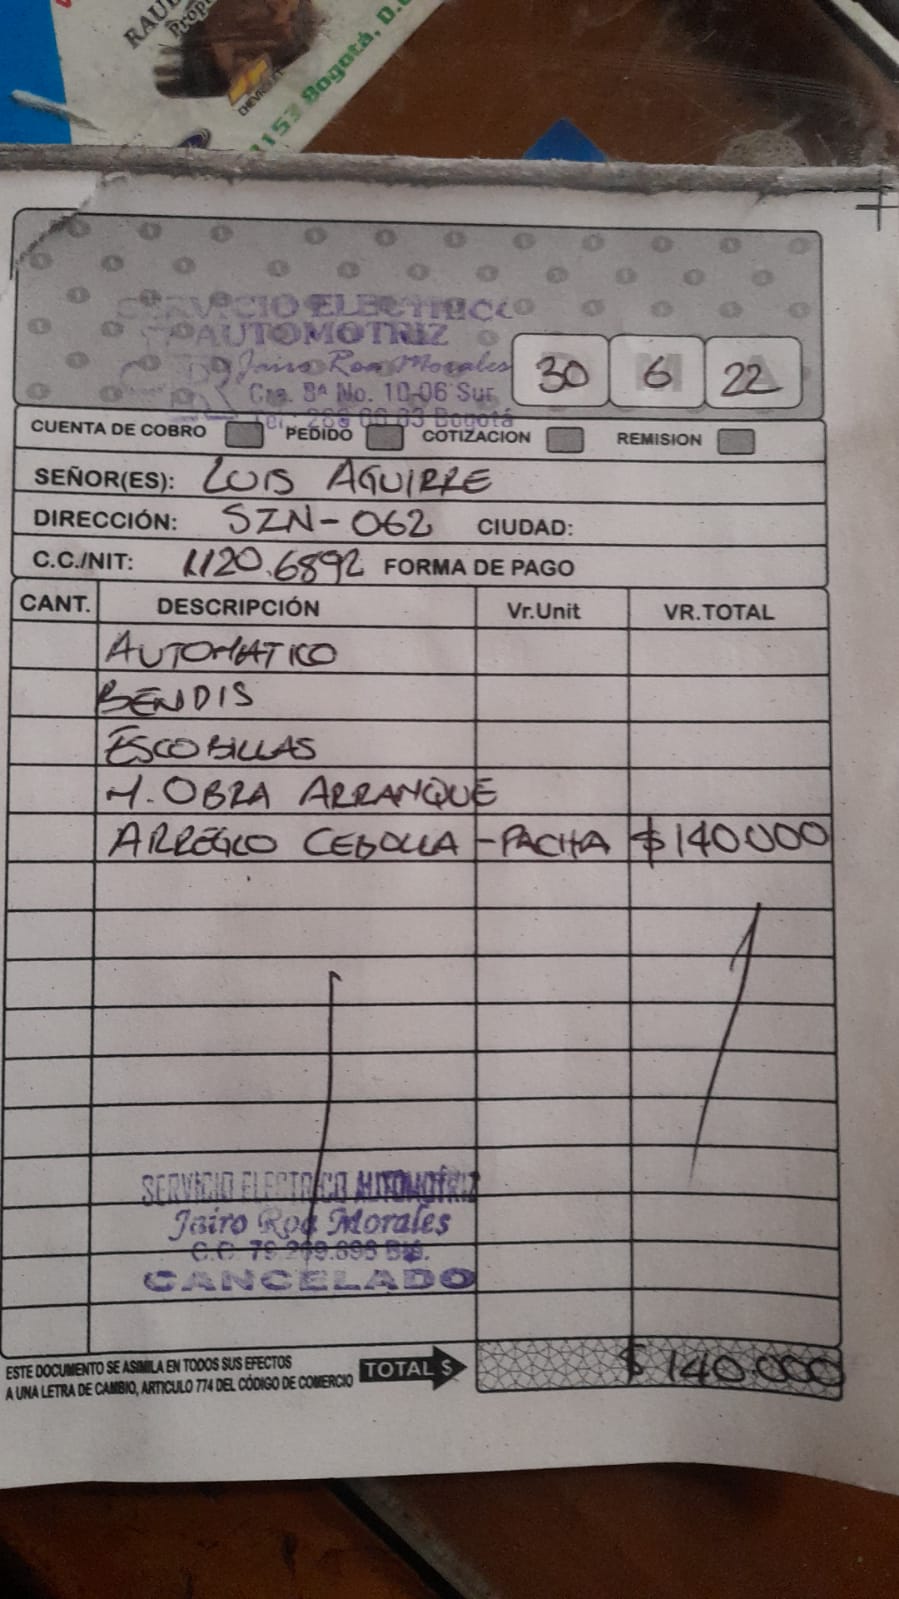 RAUL
Prop
CHEVROLET
1153 Bogotá, D.C
SERVICIO ELECTRICO
AUTOMOTRIZ
Jairo Roa Morales
Cra. 8ª No. 10-06 Sur
Bogotá
30 6 22
CUENTA DE COBRO PEDIDO COTIZACION REMISION
SEÑOR(ES): LUIS AGUIRRE
DIRECCIÓN: SZN-062 CIUDAD:
C.C./NIT: 1.120.6892 FORMA DE PAGO
CANT. DESCRIPCIÓN Vr.Unit VR.TOTAL
AUTOMATICO
BENDIS
ESCOBILLAS
M. OBRA ARRANQUE
ARREGLO CEBOLLA - PACHA $140.000
SERVICIO ELECTRICO AUTOMOTRIZ
Jairo Roa Morales
C.C.
CANCELADO
ESTE DOCUMENTO SE ASIMILA EN TODOS SUS EFECTOS
A UNA LETRA DE CAMBIO, ARTICULO 774 DEL CÓDIGO DE COMERCIO
TOTAL $ $ 140.000